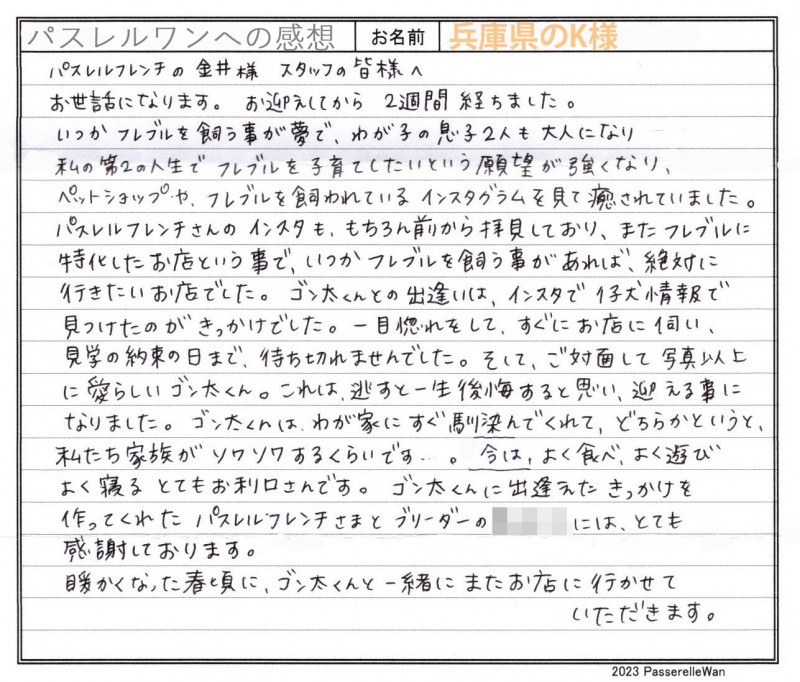 パスレルワンへの感想 お名前 兵庫県のK様
パスレルフレンチの 金井様 スタッフの皆様へ
お世話になります。 お迎えしてから 2週間 経ちました。
いつか フレブルを飼う事が夢で、わが子の息子2人も 大人になり
私の第2の人生で フレブルを子育てしたいという願望が強くなり、
ペットショップや、フレブルを飼われている インスタグラムを見て 癒されていました。
パスレルフレンチさんの インスタも、もちろん前から拝見しており、また フレブルに
特化したお店という事で、いつか フレブルを飼う事があれば、絶対に
行きたいお店でした。 ゴン太くんとの出逢いは、インスタで 仔犬情報で
見つけたのが きっかけでした。 一目惚れをして、すぐにお店に伺い、
見学の約束の日まで、待ち切れませんでした。 そして、ご対面して 写真以上
に愛らしい ゴン太くん。 これは、逃すと一生後悔すると思い、迎える事に
なりました。 ゴン太くんは、わが家に すぐ馴染んでくれて、どちらかというと、
私たち家族が ソワソワするくらいです…。 今は、よく食べ、よく遊び
よく寝る とてもお利口さんです。 ゴン太くんに出逢えた きっかけを
作ってくれた パスレルフレンチさまと ブリーダーの には、とても
感謝しております。
暖かくなった春頃に、ゴン太くんと 一緒に またお店に行かせて
いただきます。
2023 PasserelleWan